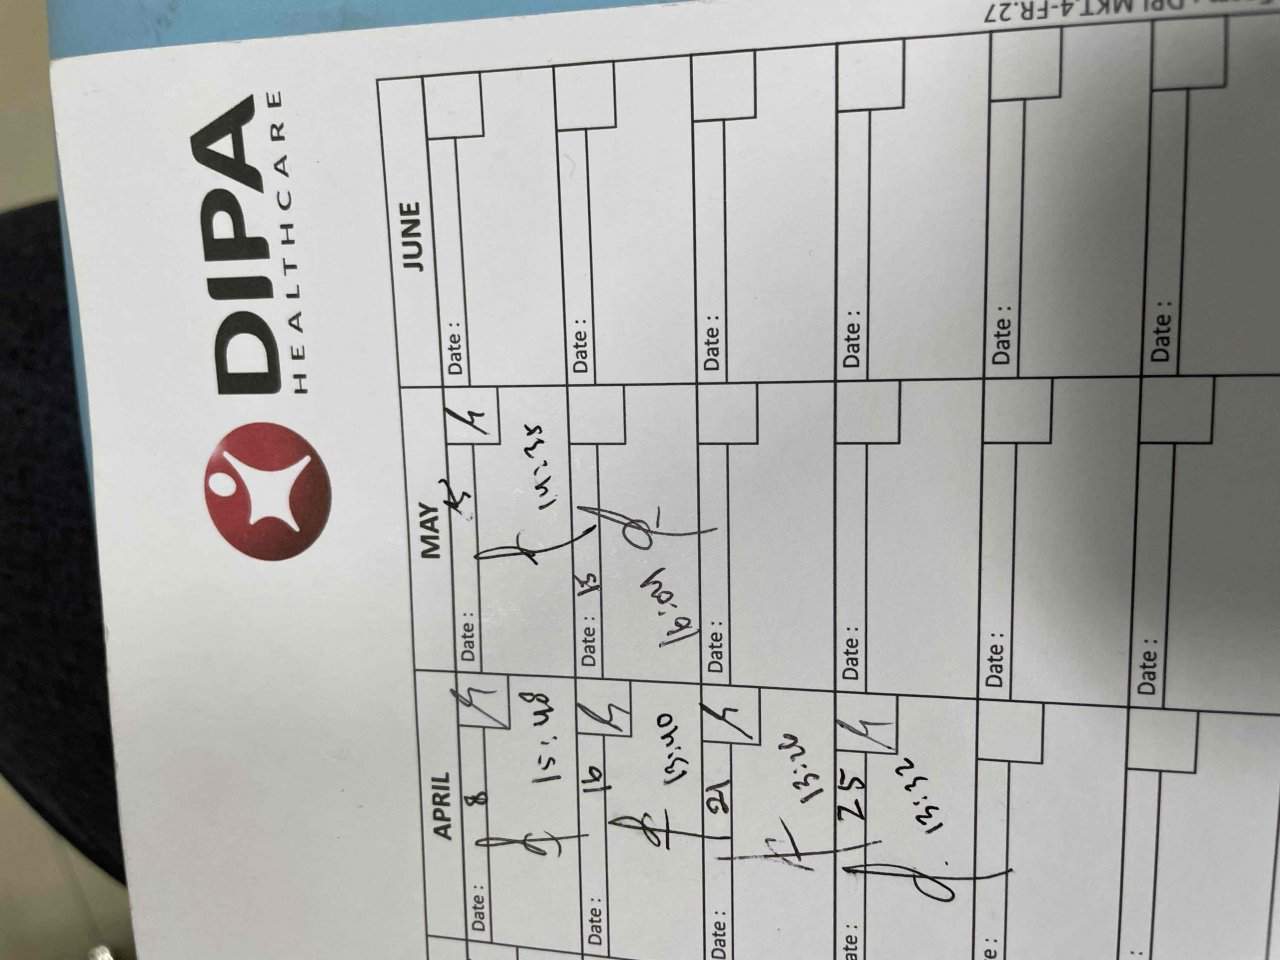 DIPA
HEALTHCARE
MKT.4-FR.27
APRIL MAY JUNE
Date : 8
15:48
Date : 5
14:35
Date :
Date : 16
13:40
Date : 13
16:04
Date :
Date : 21
13:20
Date :
Date :
ate : 25
13:32
Date :
Date :
e :
Date :
Date :
:
Date :
Date :